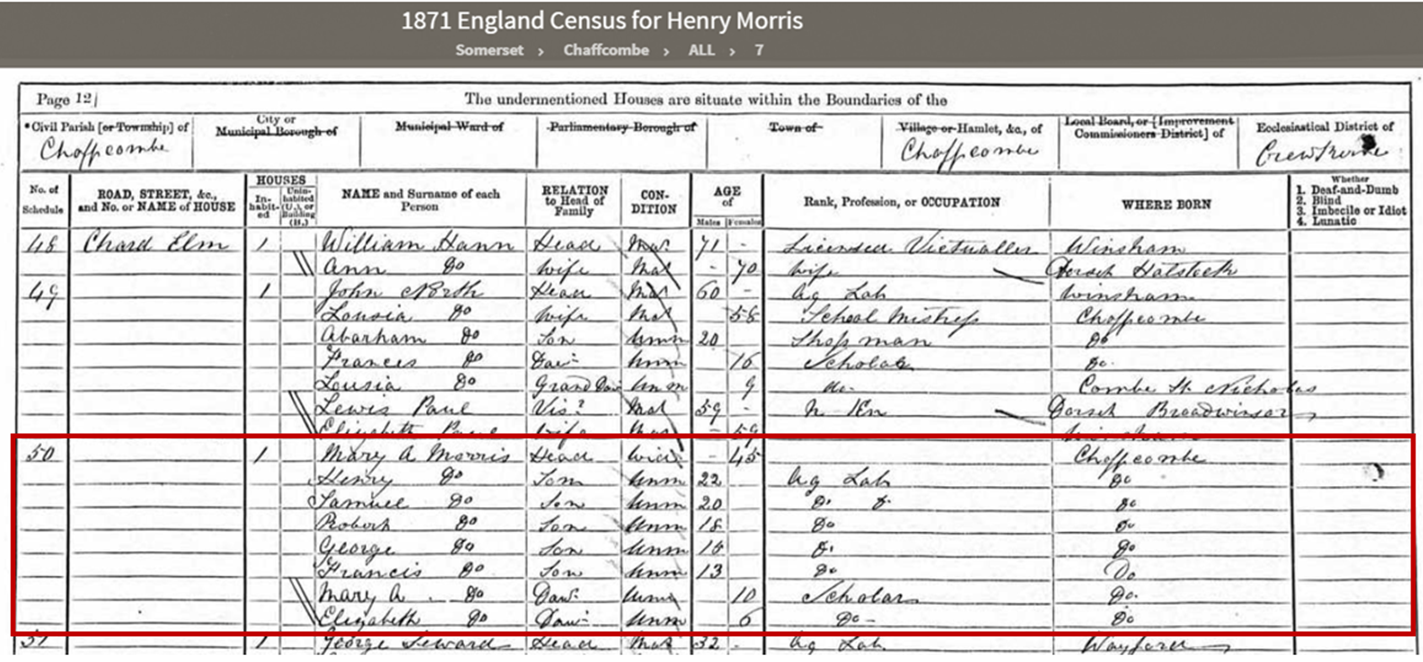 1871 England Census for Henry Morris
Somerset > Chaffcombe > ALL > 7
Page 12
The undermentioned Houses are situate within the Boundaries of the
*Civil Parish [or Township] of
City or Municipal Borough of
Municipal Ward of
Parliamentary Borough of
Town of
Village or Hamlet, &c., of
Local Board, or [Improvement Commissioners District] of
Ecclesiastical District of
Choffcombe
Choffcombe
No. of Schedule
ROAD, STREET, &c., and No. or NAME of HOUSE
HOUSES
In-habit-ed
Unin-habited (U.), or Building (B.)
NAME and Surname of each Person
RELATION to Head of Family
CON-DITION
AGE of
Males
Females
Rank, Profession, or OCCUPATION
WHERE BORN
Whether
1. Deaf-and-Dumb
2. Blind
3. Imbecile or Idiot
4. Lunatic
48 Chard Elm 1 William Hann Head Mar 71 - Licensed Victualler Winsham
Ann Do Wife Mar - 70 Wife Dorset
49 1 John North Head Mar 60 - Ag Lab Winsham
Lousia Do Wife Mar - 58 School Mistress Choffcombe
Abarham Do Son Unm 20 Shop man Do
Frances Do Dau Unm 16 Scholar Do
Lousia Do Grand Dau Unm 9 do Combe St Nicholas
Lewis Paul Vis Mar 59 - Dorset Broadwinsor
Elizabeth Paul Wife Mar - 59
50 1 Mary A Morris Head Wid - 45 Choffcombe
Henry Do Son Unm 22 Ag Lab Do
Samuel Do Son Unm 20 Do Do
Robert Do Son Unm 18 Do Do
George Do Son Unm 16 Do Do
Francis Do Son Unm 13 Do Do
Mary A Do Daur Unm 10 Scholar Do
Elizabeth Do Daur Unm 6 Do Do
51 1 George Seward Head Mar 32 - Ag Lab Wayford